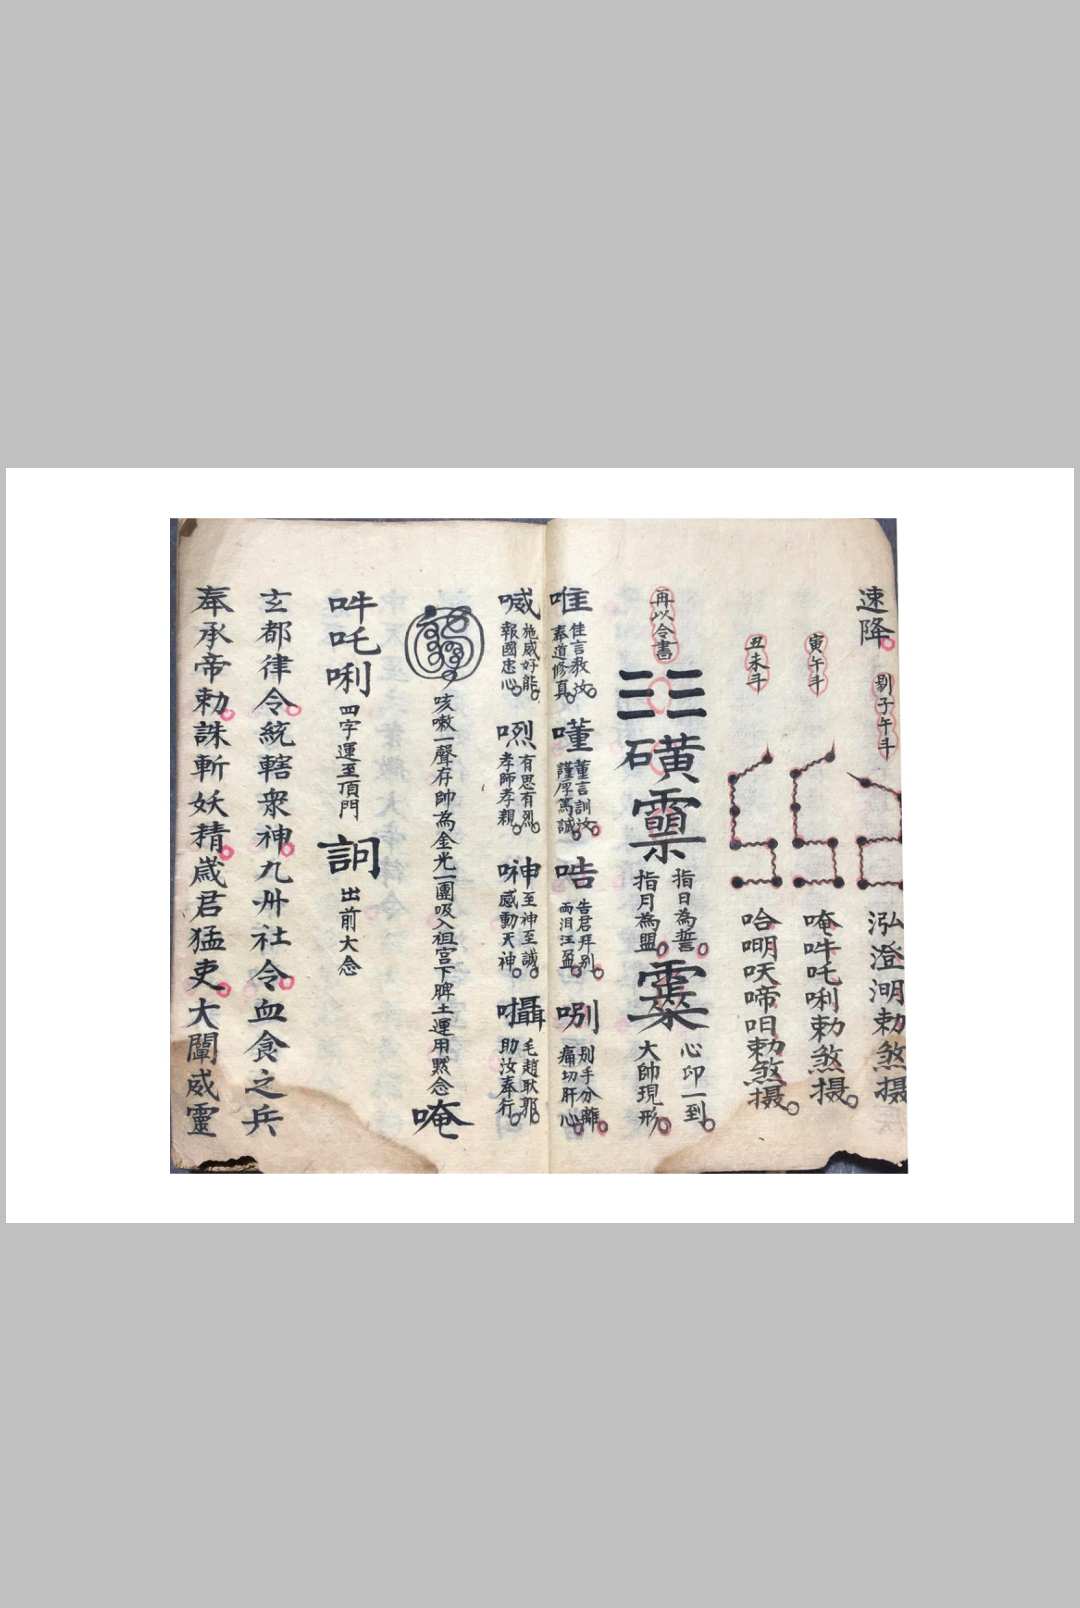 速降
剔子午斗
泓澄湖勅煞摄
寅午斗
唵吽吒唎勅煞摄
丑未斗
哈啊呋啼呾勅煞摄
再以令書
礦
指日為誓
指月為盟
心印一到
大帥現形
唯
佳言教汝
奉道修真
嗹
董言訓汝
謹厚篤誠
哠
告君拜别
雨泪汪盈
唎
别手分離
痛切肝心
喴
施威好能
報國忠心
烈
有思有烈
孝師孝親
呻
至神至誠
感動天神
囁
毛趙耿鄧
助汝奉行
咳嗽一聲存帥為金光一團吸入祖宫下脾土運用黙念
唵
吽吒唎
四字運至頂門
詗
出前大念
玄都律令統轄衆神九州社令血食之兵
奉承帝勅誅斬妖精嵗君猛吏大闡威靈